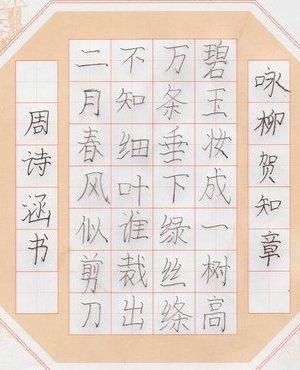 咏柳贺知章
碧玉妆成一树高
万条垂下绿丝绦
不知细叶谁裁出
二月春风似剪刀
周诗涵书